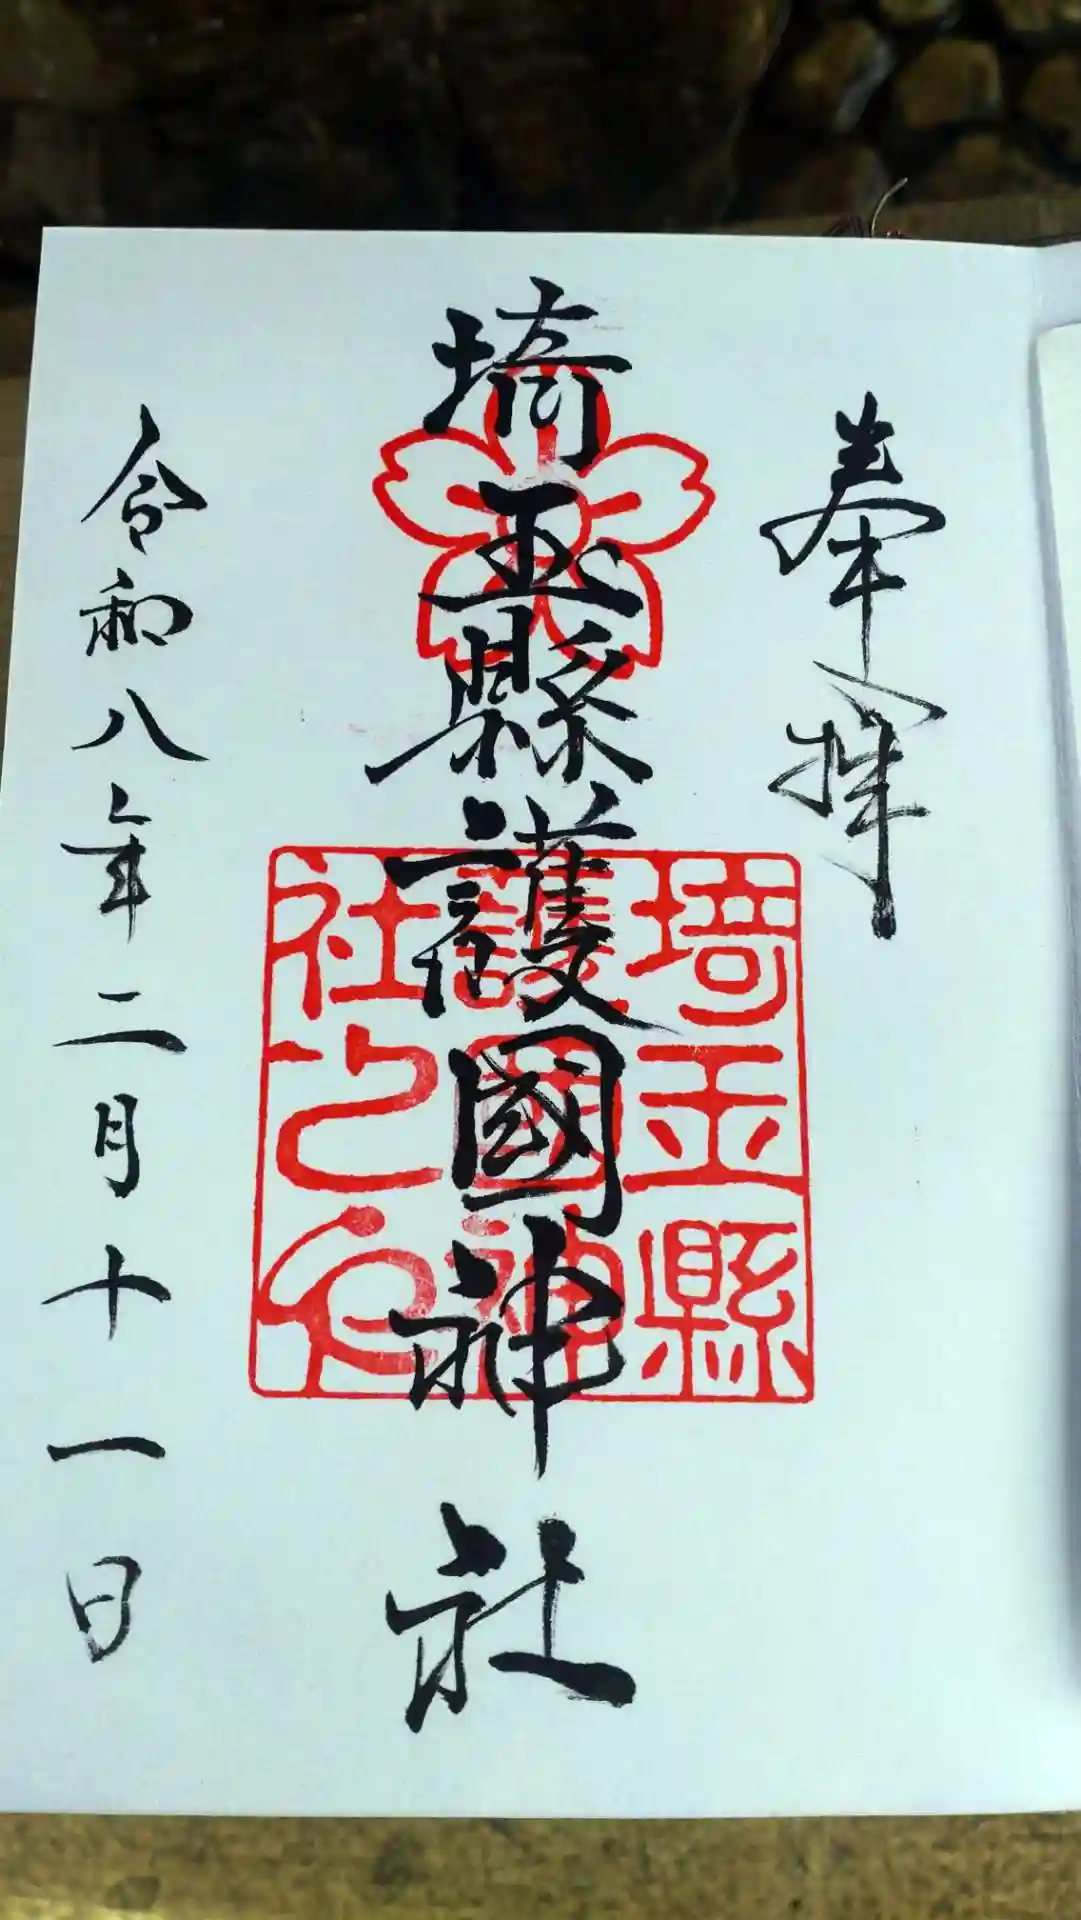 奉拝
埼玉縣護國神社
埼玉縣
護國神
社之印
令和八年二月十一日